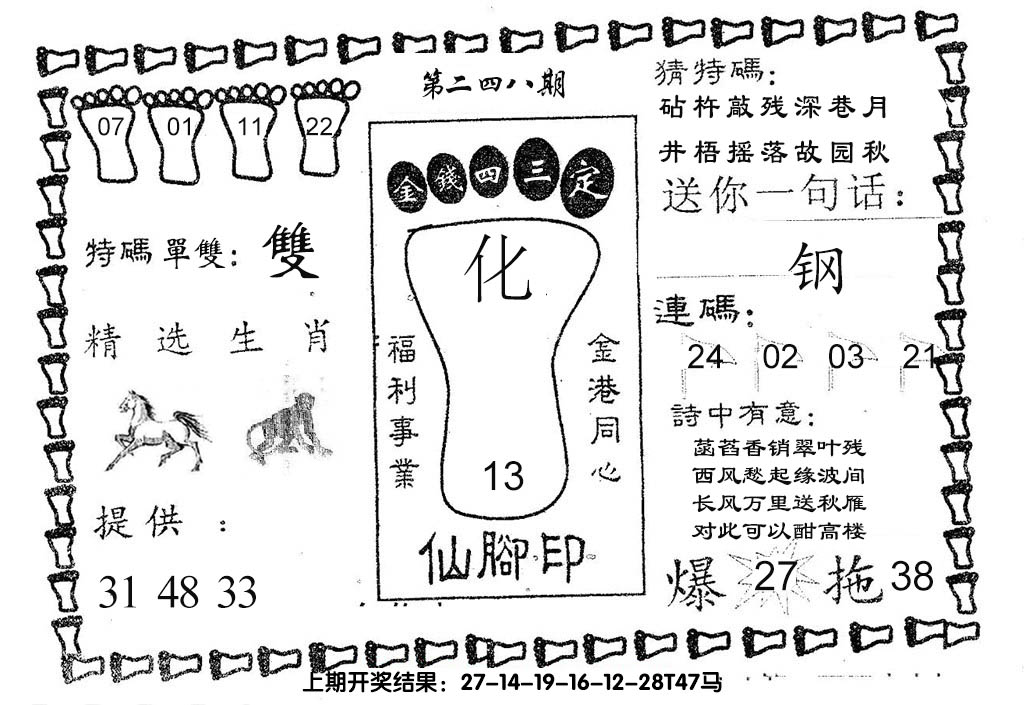 第二四八期
07 01 11 22
特碼單雙：雙
精选生肖
提供：
31 48 33
金錢四三定
化
福利事業
金港同心
13
仙腳印
猜特碼：
砧杵敲残深巷月
井梧摇落故园秋
送你一句话：
钢
連碼：
24 02 03 21
詩中有意：
菡萏香销翠叶残
西风愁起缘波间
长风万里送秋雁
对此可以酣高楼
爆 27 拖 38
上期开奖结果：27-14-19-16-12-28T47马